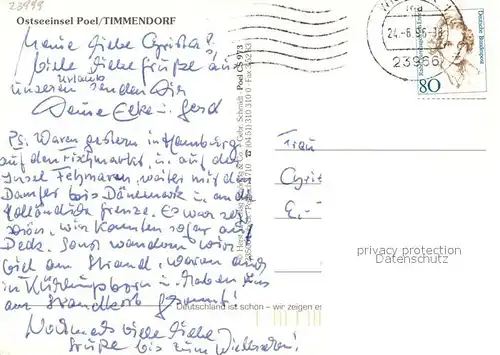 23999
Ostseeinsel Poel/TIMMENDORF
Meine liebe Christa!
Viele liebe Grüße aus
unserem Urlaub senden Dir
Deine Elke u. Gerd
Ps. Waren gestern in Hamburg
auf dem Fischmarkt u. auf der
Insel Fehmarn, weiter mit dem
Dampfer bis Dänemark u. an die
holländische Grenze. Es war sehr
schön, wir konnten sogar auf
Deck. Sonst wandern wir
viel am Strand, waren auch
in Kühlungsborn u. haben uns
am Strandkorb gesonnt!
Nochmals viele liebe
Grüße bis zum Wiedersehen!
Deutschland ist schön – wir zeigen es
Poel GS 973
24.-6.96-18
23966
Deutsche Bundespost
80
Frau
E.-
privacy protection
Datenschutz